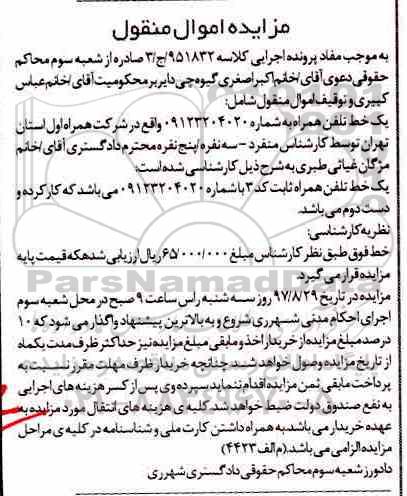 مزایده اموال منقول
به موجب مفاد پرونده اجرایی کلاسه ۹۵۱۸۳۲/ج/۳ صادره از شعبه سوم محاکم
حقوقی دعوی آقای/خانم اکبر اصغری گیوه چی دایر بر محکومیت آقای/خانم عباس
کبیری و توقیف اموال منقول شامل:
یک خط تلفن همراه به شماره ۰۹۱۲۳۲۰۴۰۲۰ واقع در شرکت همراه اول استان
تهران توسط کارشناس منفرد - سه نفره/پنج نفره محترم دادگستری آقای/خانم
مژگان غیاثی طبری به شرح ذیل کارشناسی شده است:
یک خط تلفن همراه ثابت کد ۳ با شماره ۰۹۱۲۳۲۰۴۰۲۰ می باشد که کارکرده و
دست دوم می باشد.
نظریه کارشناسی:
خط فوق طبق نظر کارشناس مبلغ ۶۵/۰۰۰/۰۰۰ ریال ارزیابی شده که قیمت پایه
مزایده قرار می گیرد.
مزایده در تاریخ ۹۷/۸/۲۹ روز سه شنبه راس ساعت ۹ صبح در محل شعبه سوم
اجرای احکام مدنی شهرری شروع و به بالاترین پیشنهاد واگذار می شود که ۱۰
درصد مبلغ مزایده از خریدار اخذ و مابقی مبلغ مزایده نیز حداکثر ظرف مدت یکماه
از تاریخ مزایده وصول خواهد شد. چنانچه خریدار ظرف مهلت مقرر نسبت به
پرداخت مابقی ثمن مزایده اقدام ننماید سپرده وی پس از کسر هزینه های اجرایی
به نفع صندوق دولت ضبط خواهد شد. کلیه ی هزینه های انتقال مورد مزایده به
عهده خریدار می باشد. به همراه داشتن کارت ملی و شناسنامه در کلیه ی مراحل
مزایده الزامی می باشد. (م الف ۴۴۲۳)
دادورز شعبه سوم محاکم حقوقی دادگستری شهرری
ParsNamadData